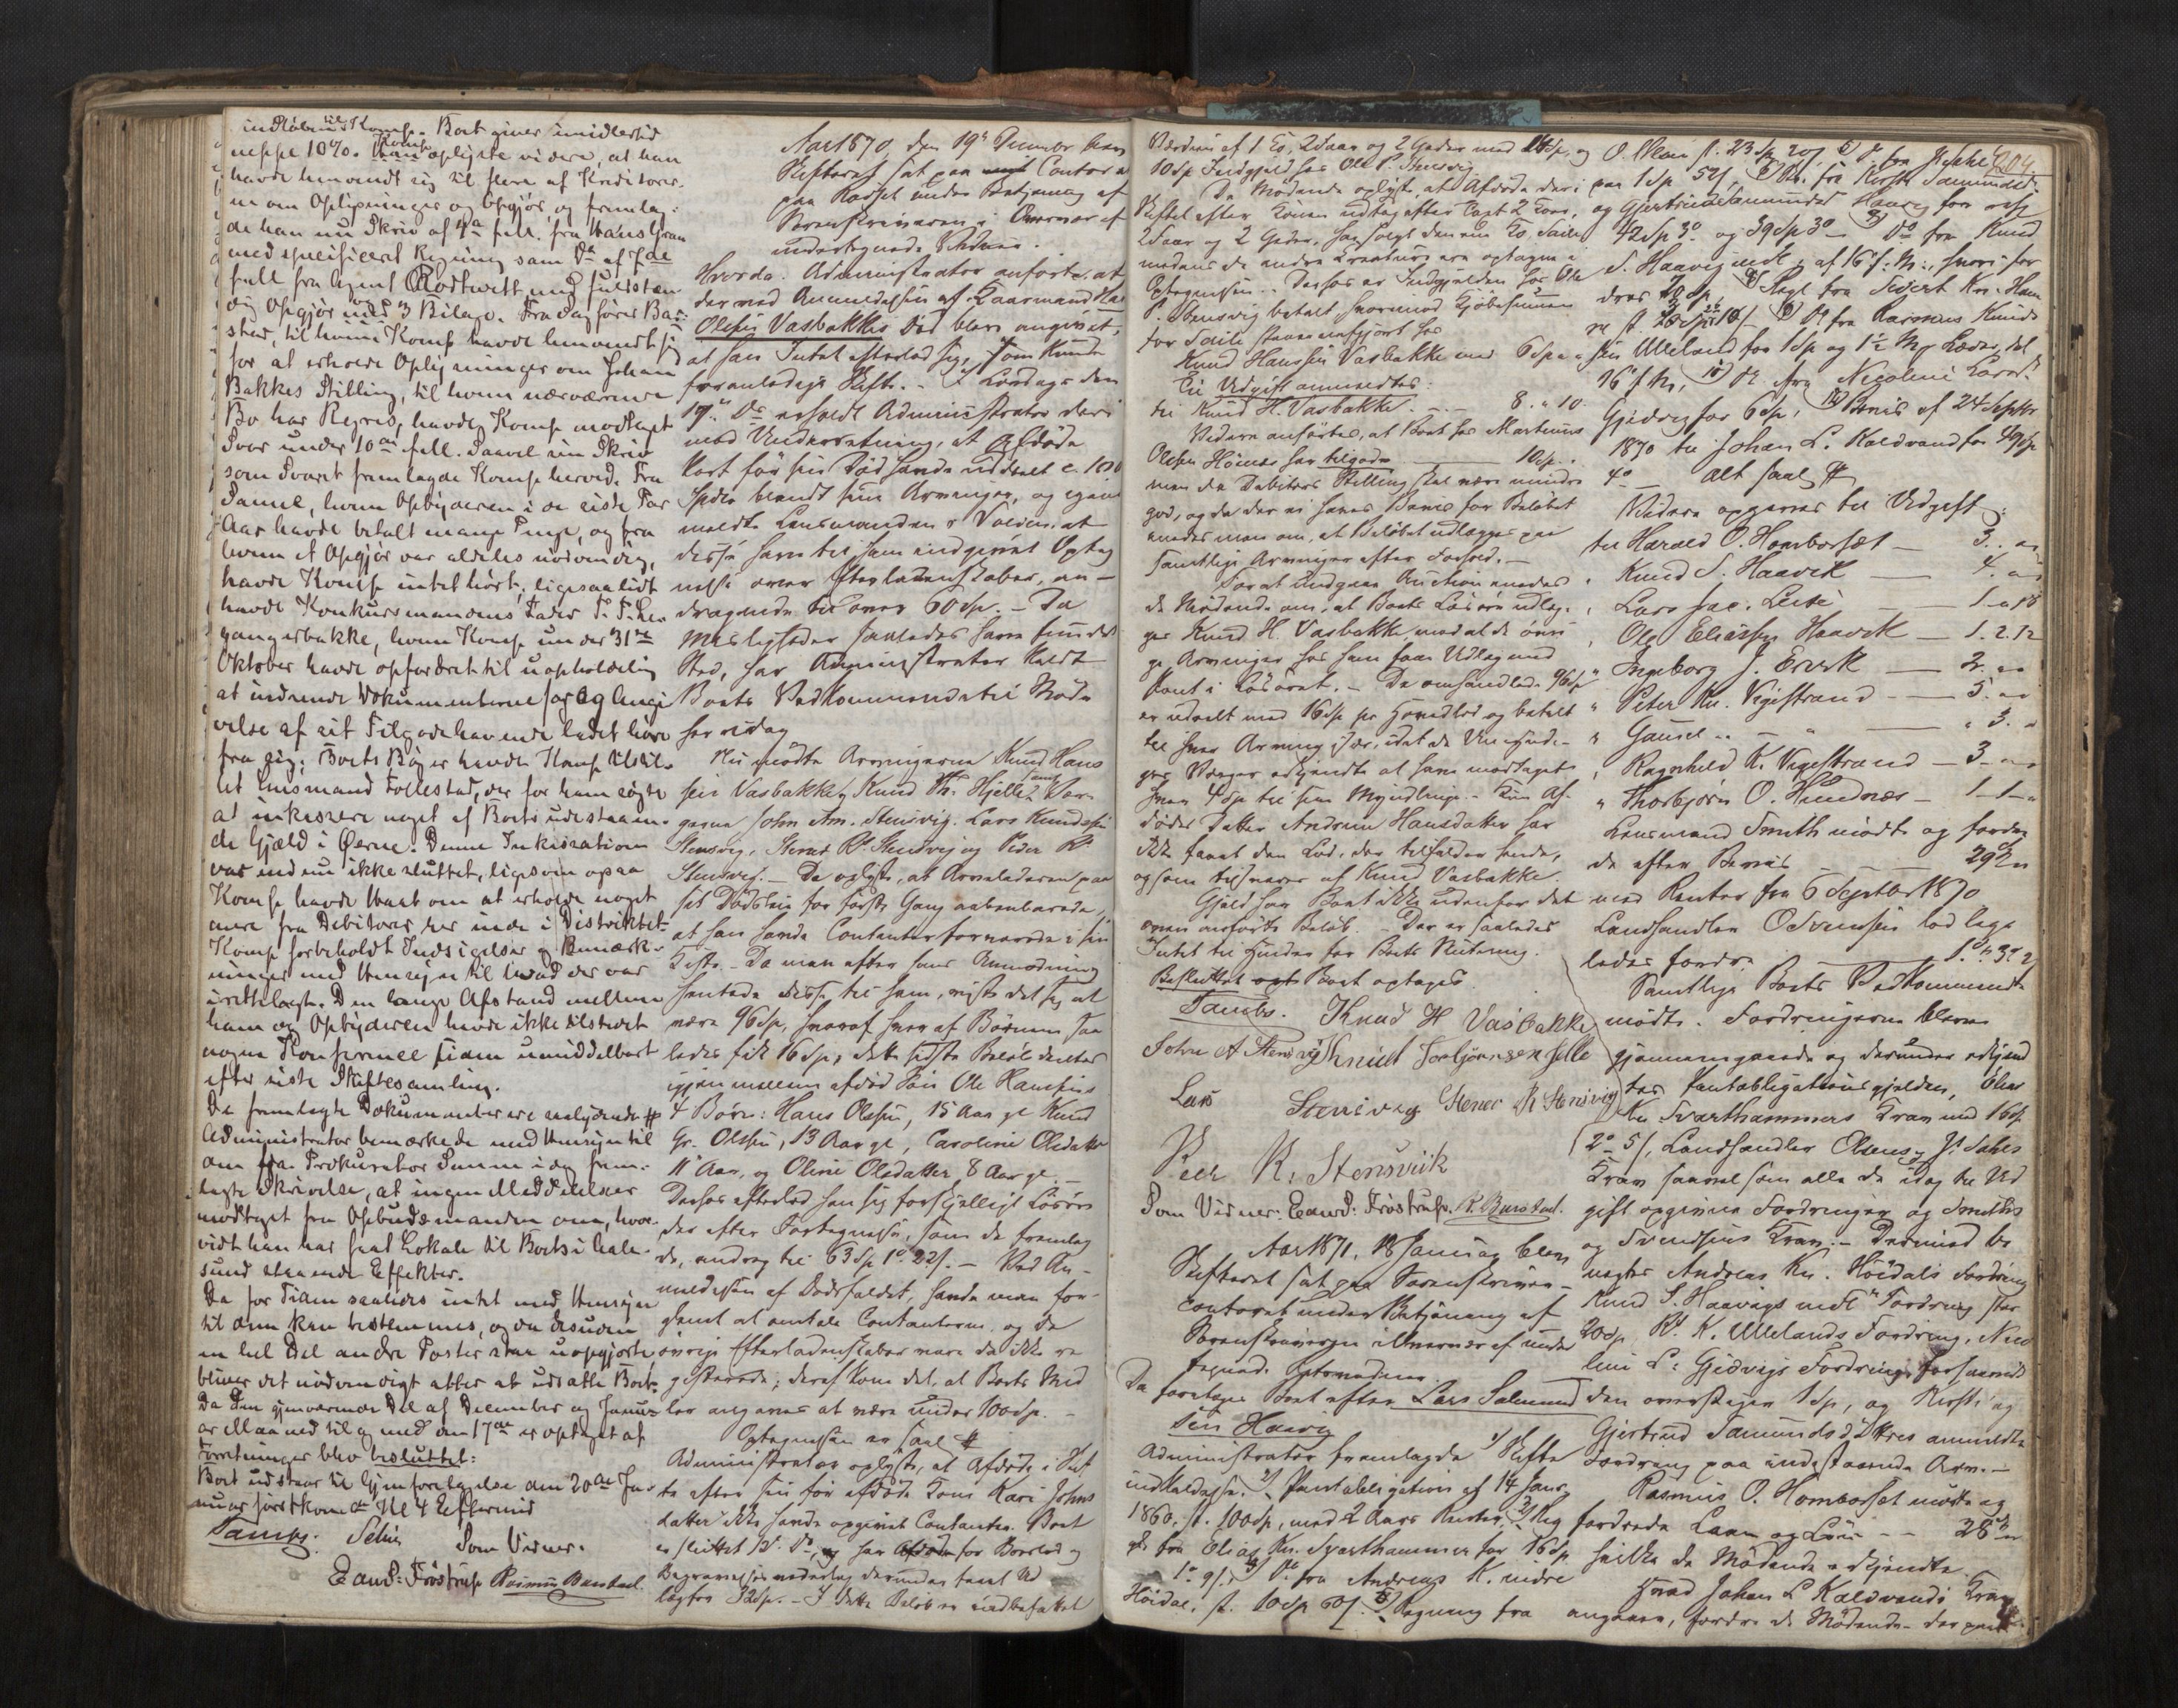 indløbne til Komp. Boet giver imidlertid
neppe 10%. Komp oplyste videre, at han
havde henvendt sig til flere af Kreditorer-
ne om Oplysninger og Opgjør, og fremlag-
de han nu Skriv af 4de fell. fra Hans Gran
med specificert Regning samt Do af 7de
fell fra Agent Rodtwitt med fuldstæn
dig Opgjør med 3 Bilage. Fra Sagfører Ba
sted, til hvem Komp havde henvendt sig
for at erholde Oplysninger om Johan
Bakkes Stilling, til hvem nærværende
Bo har Regres, havde Komp modtaget
Svar under 10de fell. Saavel sin Skriv
som Svaret fremlagde Komp herved. Fra
Samme, hvem Opbyderen i de siste Par
Aar havde betalt mange Penge, og fra
hvem et Opgjør var aldeles nødvendig,
havde Komp intet hørt; ligesaalidt
havde Konkursmandens Fader
hvem Komp under 31te
Oktober havde opfordret til uopholdelig
at indsende Dokumenterne for og Angi
velse af sit Tilgodehavende ladet høre
fra sig; Boets Bøger havde Komp tilstil-
let Lensmand Follestad, der for ham søgte
at inkassere noget af Boets udestaaen-
de Gjæld i Ørene. Denne Inkassation
var endnu ikke sluttet, ligesom ogsaa
Komp havde Haab om at erholde noget
mere fra Debitorer her inde i Distriktet.
Komp forbeholdt Indsigelser og Bemærk-
ninger med Hensyn til hvad der var
irettelagt. Den lange Afstand mellem
ham og Opbyderen havde ikke tilstedet
nogen Konference siden umiddelbart
efter siste Skiftesamling.
De fremlagte Dokumenter ere saalydende #
Administrator bemærkede med Hensyn til
den fra Prokurator Sunne i dag frem-
lagte Skrivelse, at ingen Meddelelser
modtaget fra Opbudsmanden om, hvor-
vidt han har faaet Lokale til Boets i Aale-
sund staaende Effekter.
Da for Tiden saaledes intet med Hensyn
til dem kan bestemmes, og da desuden
en hel Del andre Poster staa uopgjorte
bliver det nødvendigt atter at udsætte Boet.
Da den gjenværende Del af December og Janu-
ar Maaned til og med den 17de er optaget af
Forretninger blev besluttet:
Boet udstaar til Gjenforetagelse den 20de Ja-
nuar førstkom. Kl 4 Eftermid
Tambs. Selin Som Vidner.
Eand: Frøstrup Rasmus Baustad.
Aar 1870, den 19de Decembr blev
Skifteret sat paa Contoret
paa Rovset under Betjening af
Sorenskriveren i Overvær af
undertegnede Vidner.
Hvorda. Administrator anførte at
der med Anmeldelsen af Kaarmand Hans
Olsen Vasbakkes Død blev angivet,
at han Intet efterlod sig, som kunde
foranledige Skifte. I Lørdags den
17de Do erholdt Administrator deri
mod Underretning, at Afdøde
kort før sin Død havde uddeelt c. 100
Spdlr blandt sine Arvinger, og igaar
meldte Lensmanden i Volden, at
disse havde til ham indgivet Opteg
nelse over Efterladenskaber, an-
dragende til over 60 Sp. – Da
Misligheder saaledes have fundet
Sted, har Administrator kaldt
Boets Vedkommende til Møde
her i dag
Nu mødte Arvingerne Knud Hans
sen Vasbakke, Knud Th. Hjelle, samt Vær-
gerne John Am. Stensvig, Lars Knudsen
Stensvig, Stener R. Stensvig og Peder R.
Stensvig. – De oplyste, at Arveladeren paa
sit Dødsleie for første Gang aabenbarede,
at han havde Contanter forvarede i sin
Kiste. – Da man efter hans Anmodning
hentede disse til ham, viste det sig at
være 96 Sp, hvoraf hver af Børnene saa
ledes fik 16 Sp; dette siste Beløb deeltes
igjen mellem afdød Søn Ole Hansens
4 Børn: Hans Olsen, 15 Aar gl, Knud
Gr. Olsen, 13 Aar gl, Caroline Olsdatter
11 Aar, og Oline Olsdatter 8 Aar gl. –
Derhos efterlod han sig forskjelligt Løsøre
der efter Fortegnelse, som de fremlag
de, androg til 63 Sp 1 o 22 s. – Ved An-
meldelsen af Dødsfaldet, havde man for-
glemt at omtale Contanterne, og de
øvrige Efterladenskaber vare da ikke re
gistrerede; deraf kom det, at Boets Mid
ler angaves at være under 100 Sp. –
Optegnelsen er saal #
Administrator oplyste, at Afdøde i Skif
te efter sin før afdøde Kone Kari Johns
datter ikke havde opgivet Contanter. Boet
er sluttet
Begravelsesvederlag derunder taget Ud
læg for 32 Sp. – I dette Beløb er indbefattet
Værdien af 1 Ko, 2 Faar og 2 Geder med 24 Sp, og
10 Sp Indgjæld hos Ole P. Stensvig
De Mødende oplyste at Afdøde der i
Skiftet efter Konen udtog efter Taxt 2 Køer,
2 Faar og 2 Geder, har solgt den ene Ko, Faile
medens de andre Kreaturer ere optagne i
Optegnelsen. Derhos er Indgjælden hos Ole
P. Stensvig betalt, hvorimod Kjøbesummen
for Faile staar uafgjort hos
Knud Hansen Vasbakke med 6 Sp
Til Udgift anmeldtes:
til Knud H. Vasbakke 8 " 10
Videre anførtes, at Boet hos Martinus
Olsen Høines har tilgode 10 Sp.
men da Debitors Stilling skal være mindre
god, og da der ei haves Bevis for Beløbet
enedes man om, at Beløbet udlægges paa
samtlige Arvinger efter Forhold. –
For at undgaae Auction enedes
de Mødende om, at Boets Løsøre udlæg-
ges Knud H. Vasbakke, mod at de øvri
ge Arvinger hos ham faae Udlæg med
Pant i Løsøret. – De omhandlede 96 Sp
er udeelt med 16 Sp pr Hovedlod og betalt
til hver Arving især, idet de Umyndi-
ges Værger erkjendte at have modtaget
hver 4 Sp til sin Myndling. Kun Af-
dødes Datter Andrine Hansdatter har
ikke faaet den Lod, der tilfalder hende,
og som tilsvares af Knud Vasbakke.
Gjæld har Boet ikke udenfor det
oven anførte Beløb. – Der er saaledes
Intet til Hinder for Boets Slutning.
Besluttet Boet optages.
Tambs. Knud H Vasbakke
John A Stensvig Knud Torbjørnsen Hjelle
Lars Stensvig Stener R Stensvig
Peder R. Stensviik
Som Vidner: Eand: Frøstrup. R. Baustad.
Aar 1871, 18 Januar blev
Skifteret sat paa Sorenskriver-
contoret under Betjening af
Sorenskriveren i Overvær af under
tegnede Retsvidner.
Da foretoges Boet efter Lars Salmund
sen Haavig
Administrator fremlagde 1) Skifte
indkaldelse. 2) Pantobligation af 14 Janr
1860, st. 100 Sp, med 2 Aars Renter, 3) Reg
gl fra Elias Kn. Svarthammer for 16 Sp
1 o 9 s. 4) Do fra Andreas K. nidre
Høidal, st. 10 Sp 60 s. 5) Regning fra
204
O. Moen st. 23 Sp 20 s, 6) Do fra J. Sahl
paa 1 Sp 52 s, 7) Do. fra Kirsti Samundsd.
og Gjertrud Samundsd Haavig for resp
42 Sp 3 o og 39 Sp 3 o – 8) Do fra Knud
S. Haavig af 16 f. M., hvori for
dres 20 Sp 9) Regl fra Sivert Kn. Ham
re st. Do fra Rasmus Knud
sen Ulleland for 1 Sp og 1½ Mrk Læder, dat
16 f. M., 11) Do fra Nicoline Larsd.
Gjedvig for 6 Sp, 12) Bevis af 24 Septbr
1870 til Johan L. Kaldvand for 49 Sp
4 o – alt saal #
Videre opgaves til Udgift:
til Harald O. Homborset – 3. " "
" Knud S. Haavik – 4. " "
" Lars Jac. Leite – 1 " 18
" Ole Eliassen Haavik – 1. 2. 12
" Ingeborg J. Ervik – 2. " "
" Peter Kn. Vigestrand – 5. " "
" Gausel " – " 3. "
" Ragnhild K. Vigestrand – 3 – " "
" Thorbjørn O. Hundnæs – 1 – 1 – "
Lensmand Smith mødte og fordre
de efter Bevis – 29 Sp "
med Renter fra 6 Septbr 1870
Landhandler O Svensen lod lige
ledes fordre 1. " 3. 2
Samtlige Boets Vedkommende
mødte. Fordringerne bleve
gjennemgaaede og derunder erkjend
tes Pantobligationsgjælden, Elias
Kn. Svarthammers Krav med 16 Sp
2 o 5 s, Landhandler Olsens, J. Sahls
Krav saavel som alle de idag til Ud
gift opgivne Fordringer og Smiths
og Svendsens Krav. – Derimod be
nægtes Andreas Kn. Høidals Fordring
Knud S. Haavigs Fordring stor
20 Sp, R. K. Ullelands Fordring, Nico
line L. Gjedvigs Fordring, forsaavidt
den overstiger 1 Sp, og Kirsti og
Gjertrud Samundsd. Ytres anmeldte
Fordring paa indestaaende Arv. –
Rasmus O. Homborset mødte og
fordrede Laan og Løn – – 28 Sp "
hvilke de Mødende erkjendte
Hvad Johan L Kaldvands Krav
angaaer, fordre de Mødende der paa